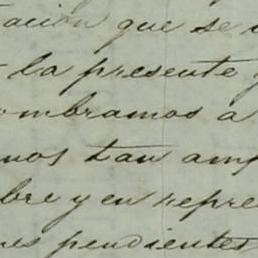 tacion que se
la presente y
ombramos a
mos tan amp
bre y en repre
nes pendientes